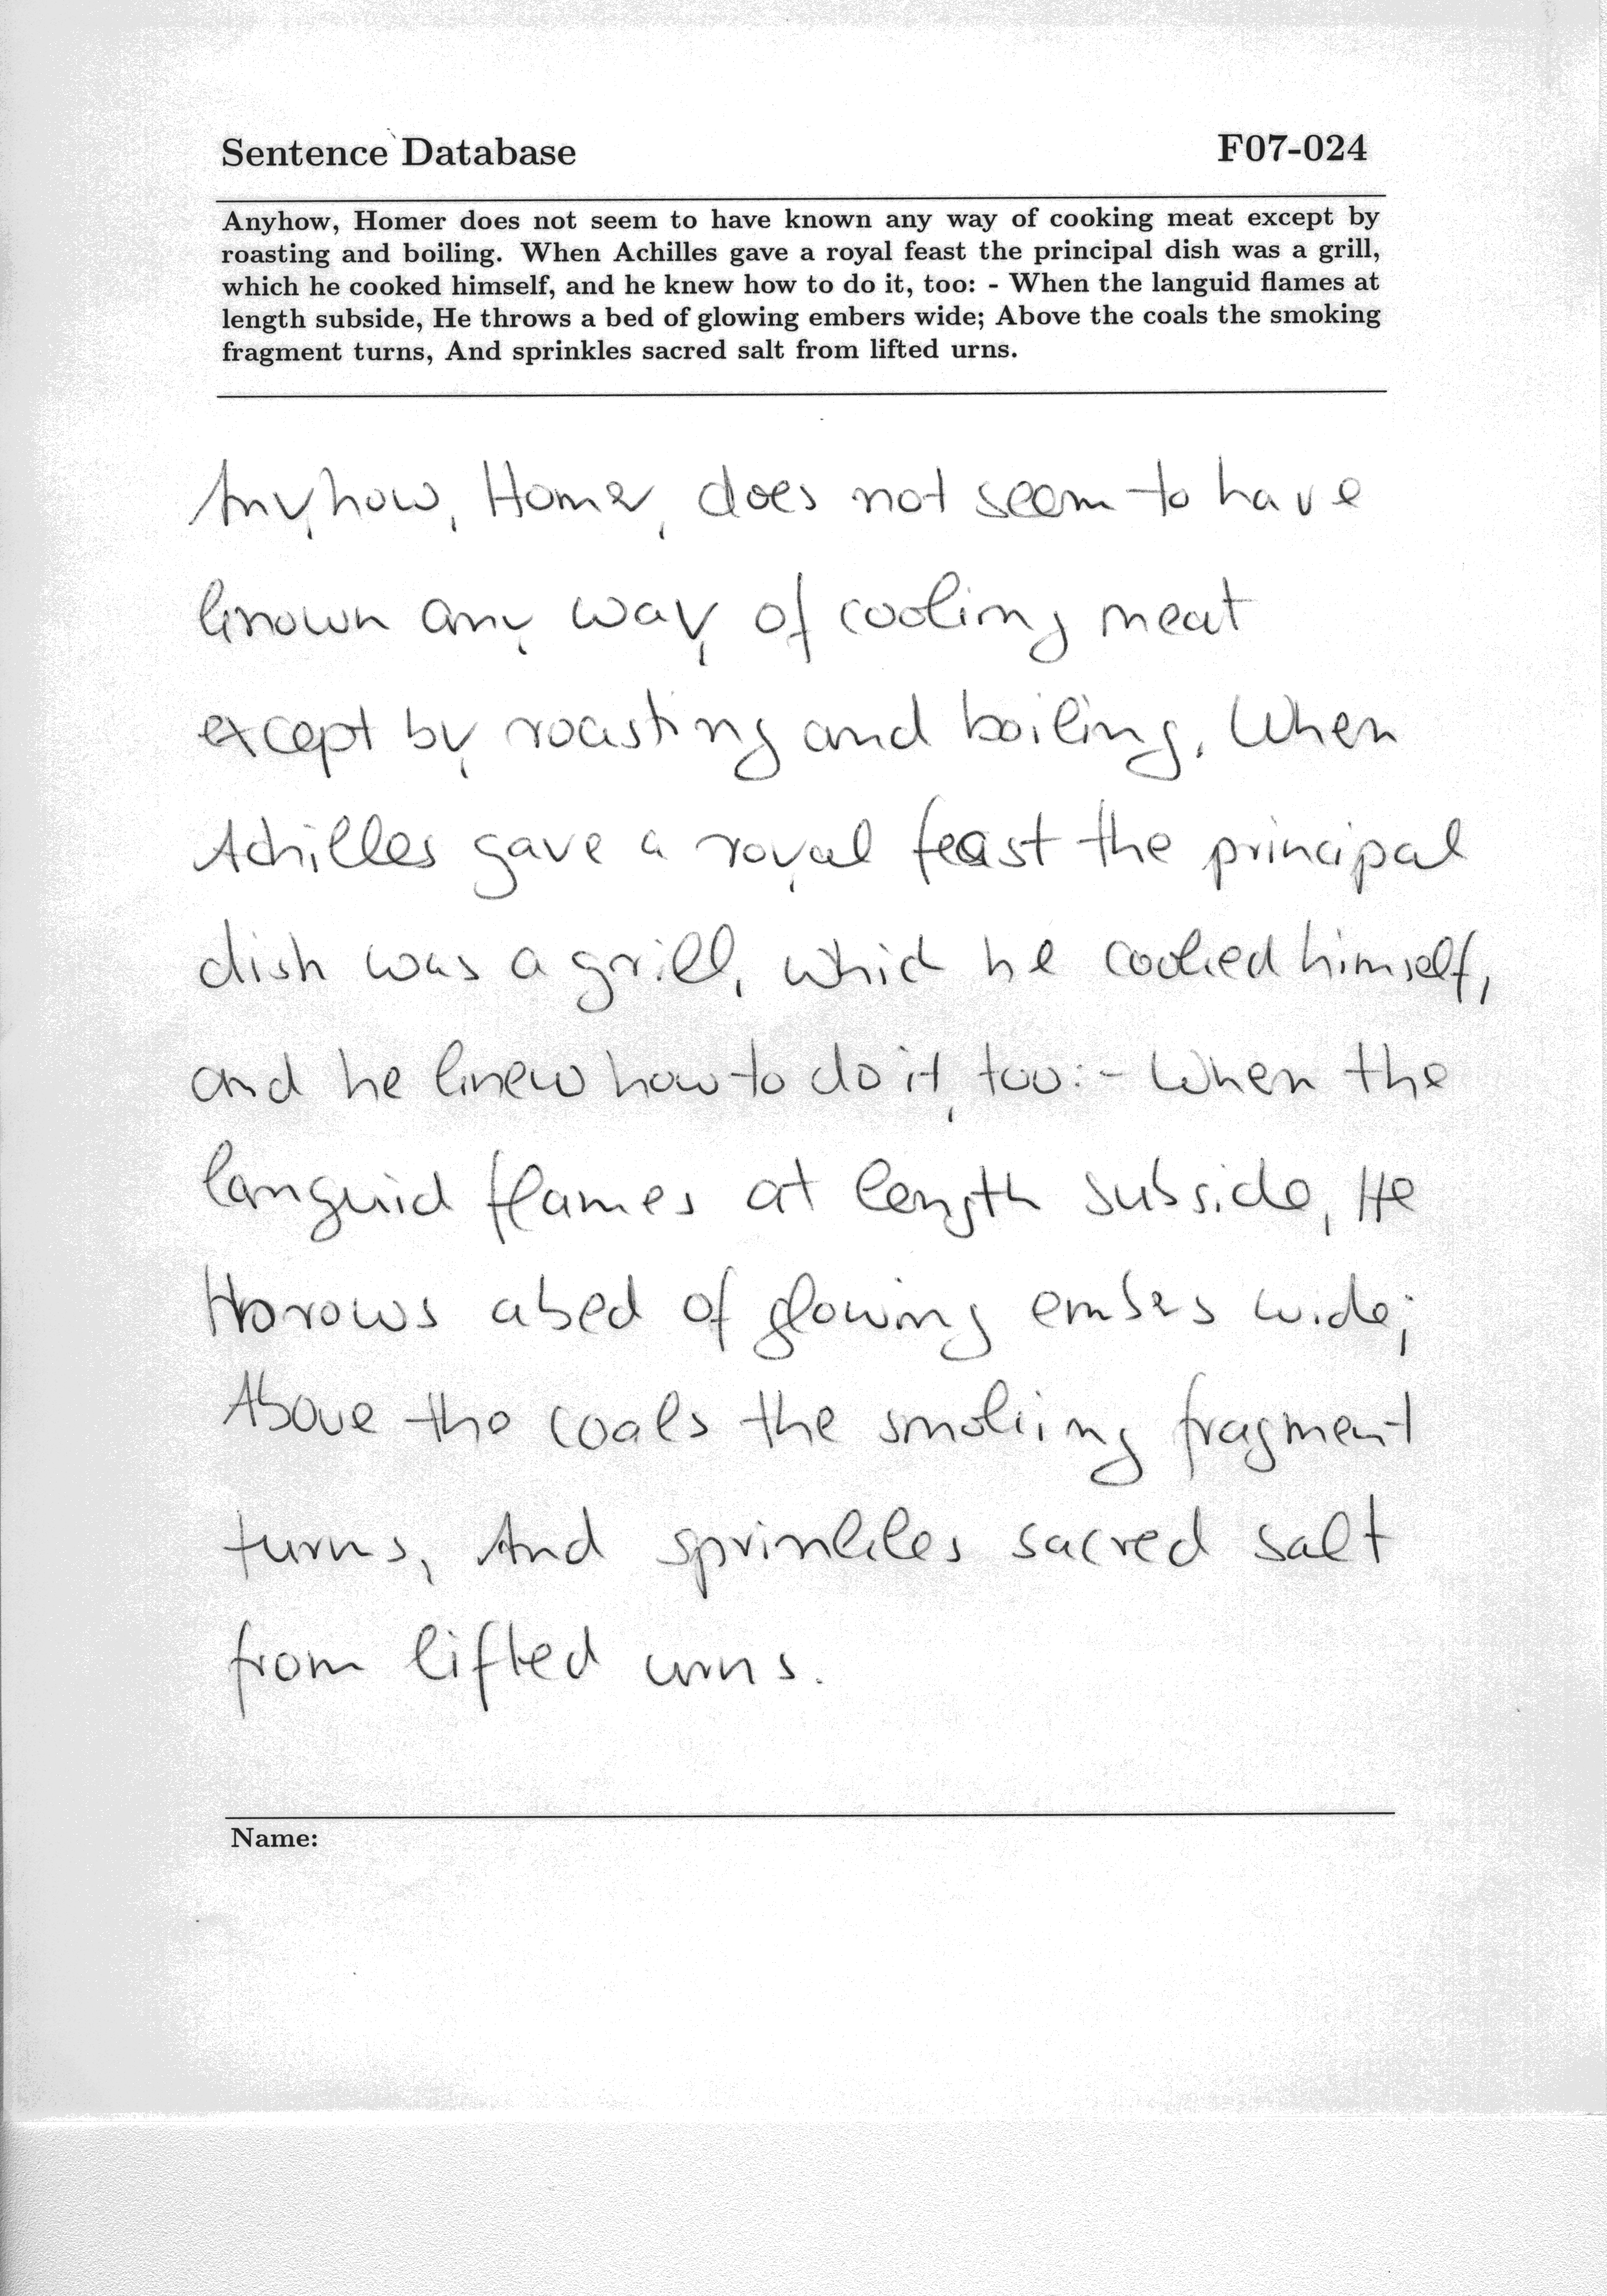 Sentence Database F07-024
Anyhow, Homer does not seem to have known any way of cooking meat except by
roasting and boiling. When Achilles gave a royal feast the principal dish was a grill,
which he cooked himself, and he knew how to do it, too: - When the languid flames at
length subside, He throws a bed of glowing embers wide; Above the coals the smoking
fragment turns, And sprinkles sacred salt from lifted urns.
Anyhow, Homer, does not seem to have
known any way of cooking meat
except by roasting and boiling. When
Achilles gave a royal feast the principal
dish was a grill, which he cooked himself,
and he knew how to do it, too: - When the
languid flames at length subside, He
throws a bed of glowing embers wide;
Above the coals the smoking fragment
turns, And sprinkles sacred salt
from lifted urns.
Name: